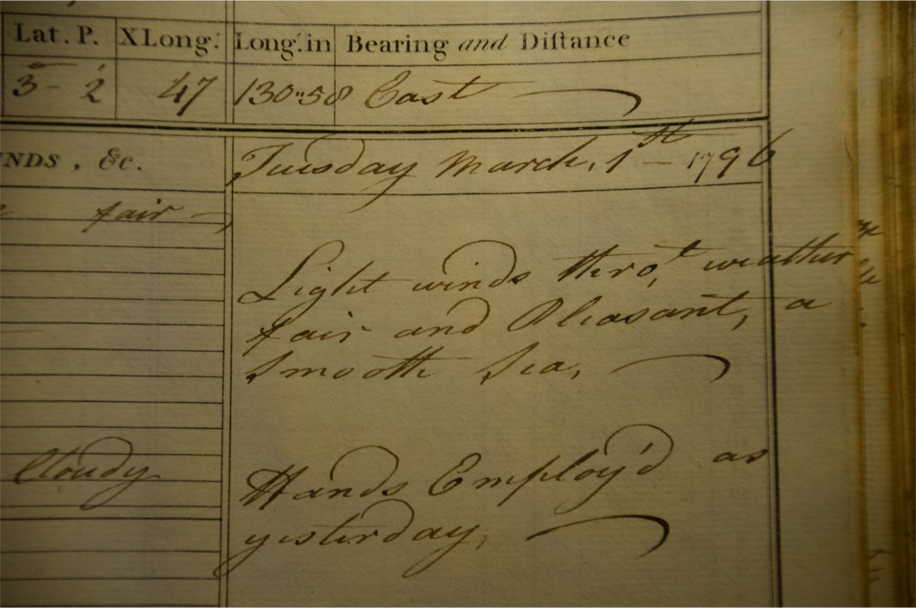 Lat. P. XLong. Long. in Bearing and Distance
3 - 2 47 130"58 East
NDS, &c. Tuesday March, 1th - 1796
fair
Light winds thro.t weather
fair and Pleasant, a
Smooth Sea,
Cloudy
Hands Employ'd as
yesterday,